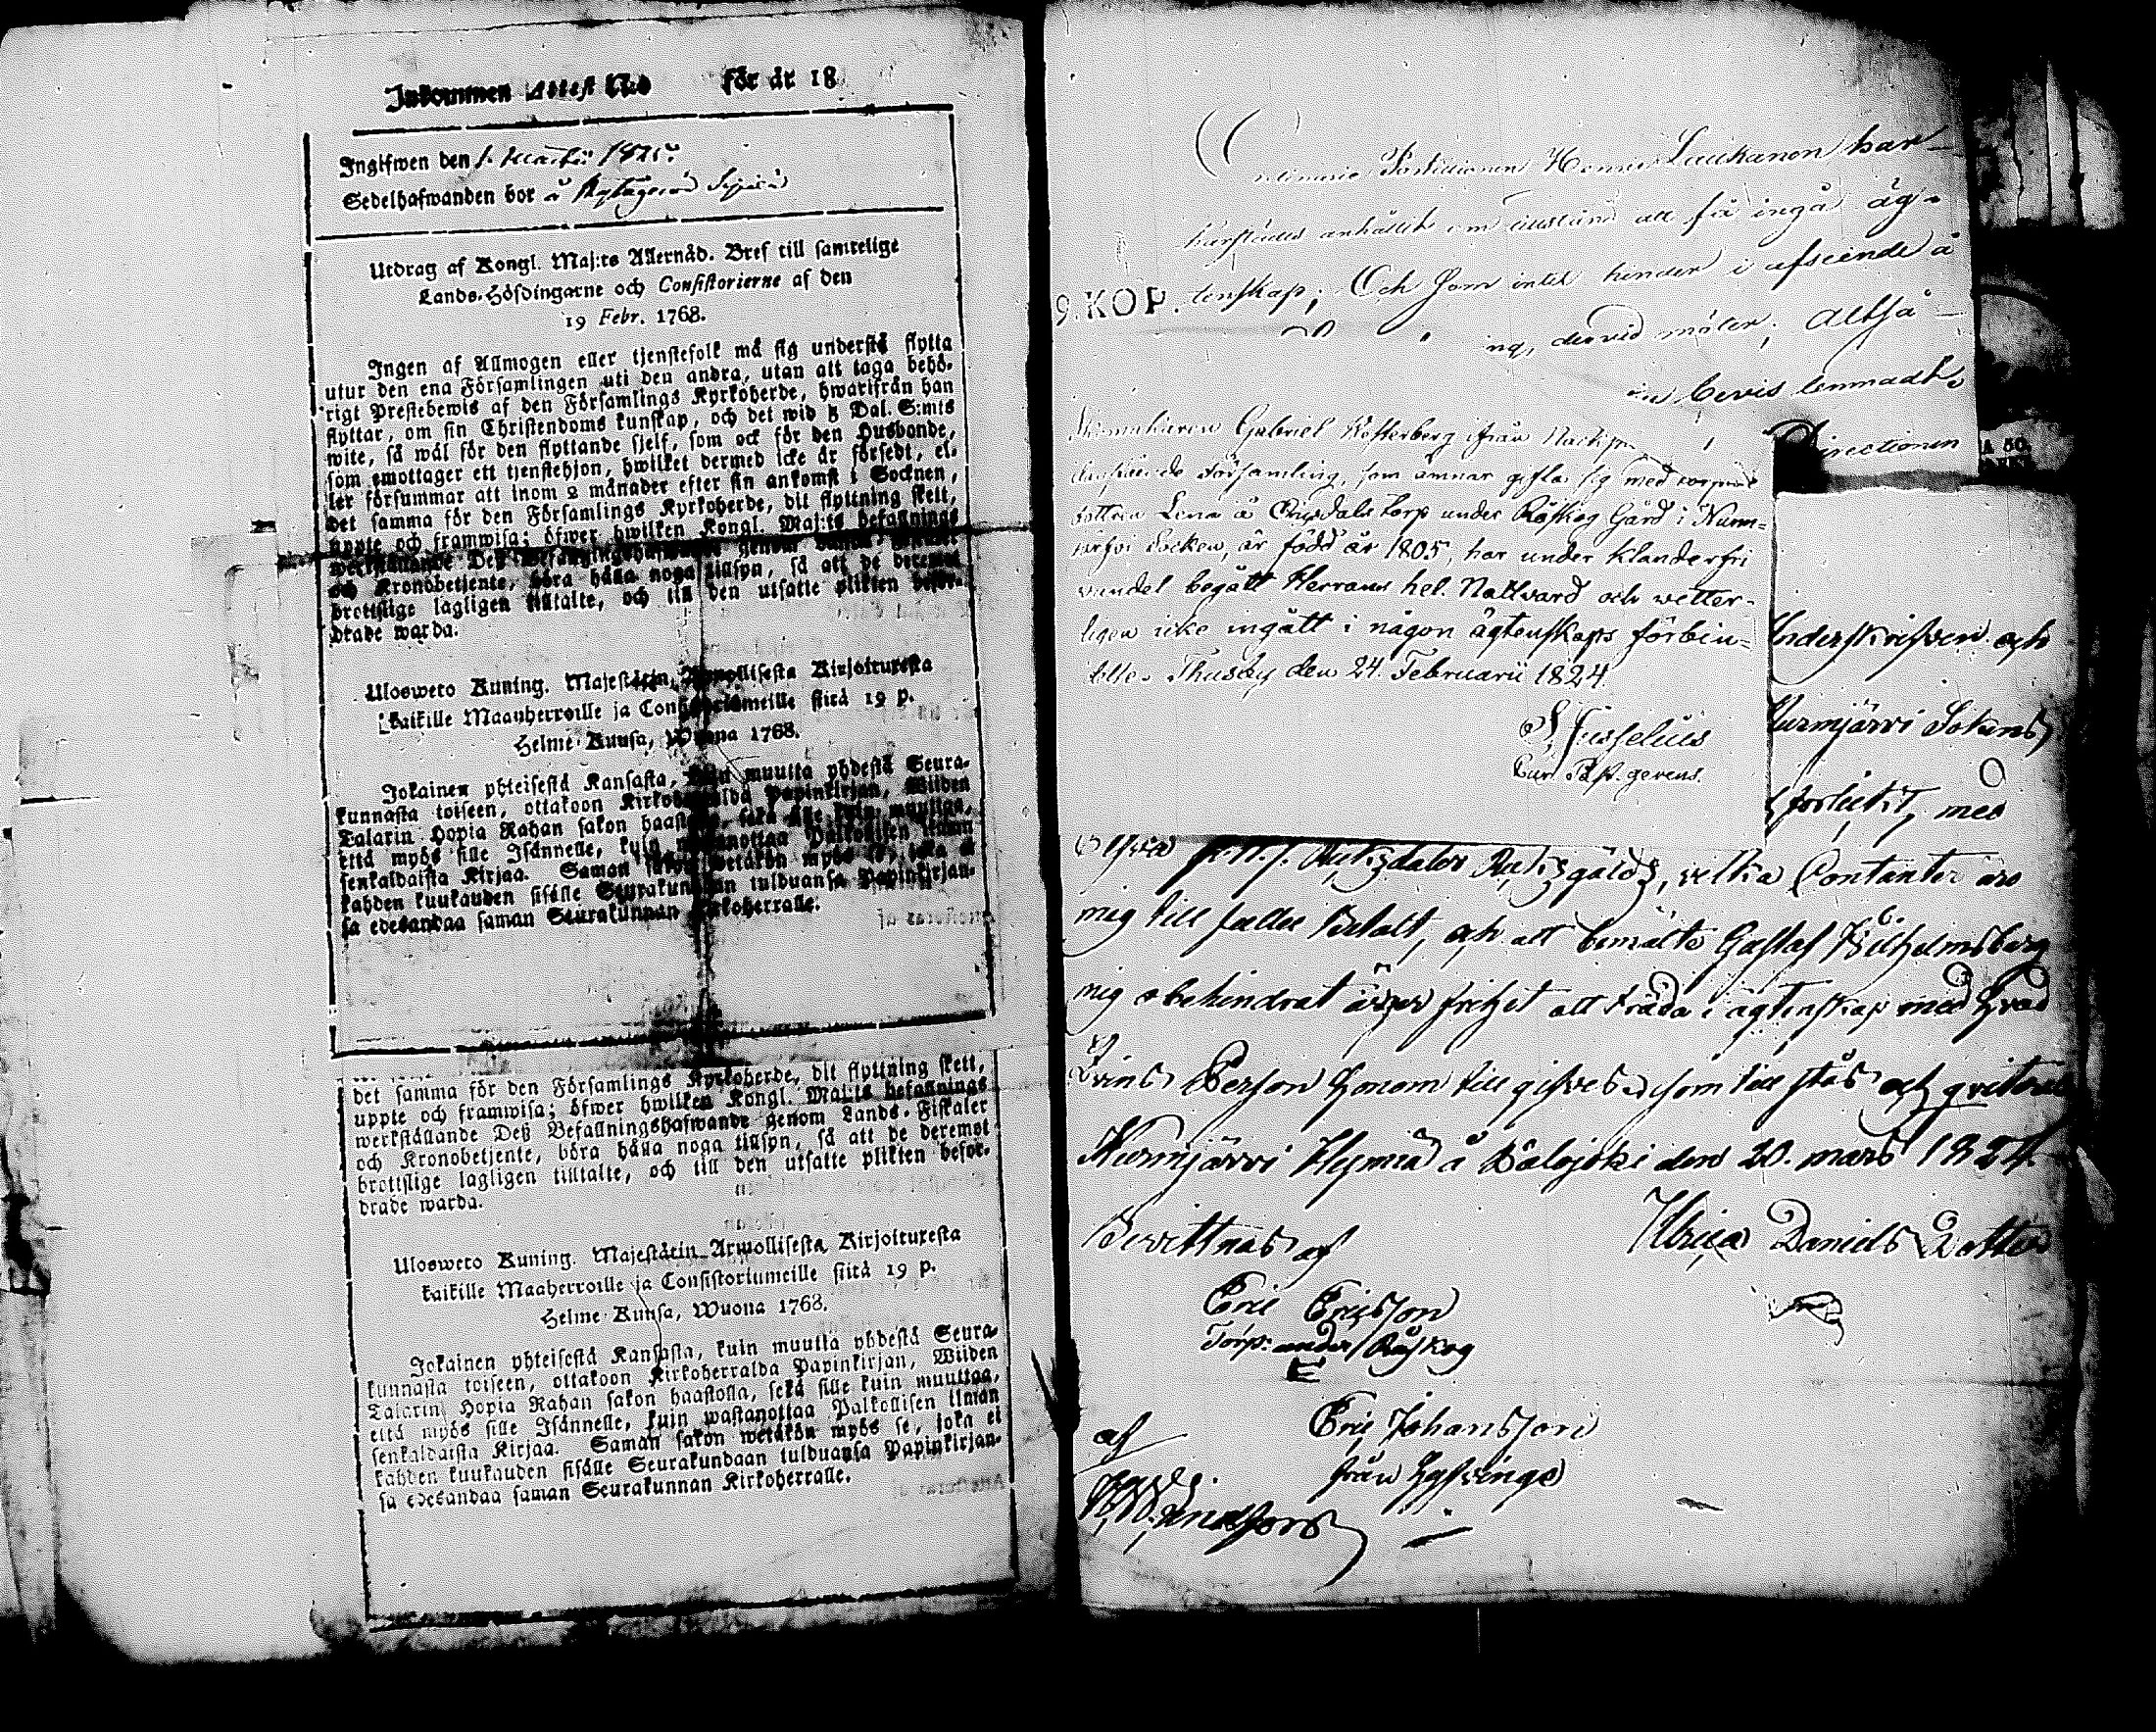 Inkommen Attest No för år 18
Ingifwen den 1. Martii 1825.
Sedelhafwanden bor å
Utdrag af Kongl. Maj:ts Allernåd. Bref till samtelige
Lands-Höfdingarne och Consistorierne af den
19 Febr. 1768.
Ingen af Allmogen eller tjenstefolk må sig understå flytta
utur den ena Församlingen uti den andra, utan att taga behö-
rigt Prestebewis af den Församlings Kyrkoherde, hwarifrån han
flyttar, om sin Christendoms kunskap, och det wid 5 Dal. S:mts
wite, så wäl för den flyttande sjelf, som ock för den Husbonde,
som emottager ett tjenstehjon, hwilket dermed icke är försedt, el-
ler försummar att inom 2 månader efter sin ankomst i Socknen,
det samma för den Församlings Kyrkoherde, dit flyttning skett,
uppte och framwisa; öfwer hwilken Kongl. Maj:ts befallnings
werkställande Deß Befallningshafwande genom Lands-Fiskaler
och Kronobetjente, böra hålla noga tillsyn, så att de deremot
brottslige lagligen tilltalte, och till den utsatte plikten befor-
drade warda.
Ulosweto Kuning. Majestätin Armollisesta Kirjoituxesta
kaikille Maanherroille ja Consistoriumeille siitä 19 p.
Helme-Kuusa, Wuona 1768.
Jokainen yhteisestä Kansasta, kuin muutta yhdestä Seura-
kunnasta toiseen, ottakoon Kirkoherralda Papinkirjan, Wiiden
Talarin Hopia Rahan sakon haastolla, sekä sille kuin muuttaa,
että myös sille Isännelle, kuin wastanottaa Palkollisen ilman
senkaldaista Kirjaa. Saman sakon wetäkön myös se, joka ei
kahden kuukauden sisälle Seurakundaan tulduansa Papinkirjan-
sa edesandaa saman Seurakunnan Kirkoherralle.
det samma för den Församlings Kyrkoherde, dit flyttning skett,
uppte och framwisa; öfwer hwilken Kongl. Maj:ts befallnings
werkställande Deß Befallningshafwande genom Lands-Fiskaler
och Kronobetjente, böra hålla noga tillsyn, så att de deremot
brottslige lagligen tilltalte, och till den utsatte plikten befor-
drade warda.
Ulosweto Kuning. Majestätin Armollisesta Kirjoituxesta
kaikille Maaherroille ja Consistoriumeille siitä 19 p.
Helme-Kuusa, Wuona 1768.
Jokainen yhteisestä Kansasta, kuin muutta yhdestä Seura-
kunnasta toiseen, ottakoon Kirkoherralda Papinkirjan, Wiiden
Talarin Hopia Rahan sakon haastolla, sekä sille kuin muuttaa,
että myös sille Isännelle, kuin wastanottaa Palkollisen ilman
senkaldaista Kirjaa. Saman sakon wetäkön myös se, joka ei
kahden kuukauden sisälle Seurakundaan tulduansa Papinkirjan-
sa edesandaa saman Seurakunnan Kirkoherralle.
Ordinarie Postillionen Henric Laukanon har
härstädes anhållit om tillstånd att få ingå äg-
tenskap; Och som intet hinder i afseende å
9. KOP.
ng, dervid möter; Altså
Bevis lemnadt.
Directionen
Gabriel Westerberg ifrån
Församling, som ämnar gifta sig med torpare
dottren Lena å torp under Röskog Gård i Nurm-
järfvi Socken, är född år 1805, har under klanderfri
vandel begått Herrans hel. Nattvard och vetter-
ligen icke ingått i någon ägtenskaps förbin-
delse. Thusby den 24. Februarii 1824.
Jusselius
Cur. Past. gerens.
Underskrifven och
Nurmjärvi Sokens
förlickt, med
Riksdaler Riksgälds, vilka Contanter äro
mig till fullo Betalt, och att bemälte Gustaf Wilhelmsberg
mig obehindrat äger frihet att träda i ägtenskap med hvad
Qvins Person honom till gifves, som till stås och qvitteras
Nurmjärvi Hemma å Palojoki den 20. mars 1824
Bevittnas af
Ulrica Daniels Dotter
Eric Ericsson
Torp: under Röskog
Eric Johansson
från
af